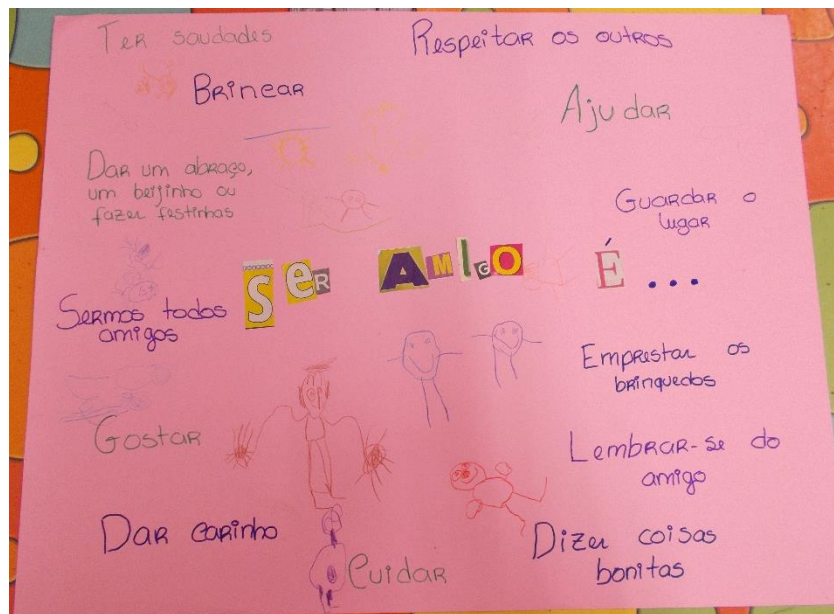 Ter saudades
Respeitar os outros
Brincar
Ajudar
Dar um abraço,
um beijinho ou
fazer festinhas
Guardar o
lugar
SeR AMIGO É...
Sermos todos
amigos
Emprestar os
brinquedos
Gostar
Lembrar-se do
amigo
Dar carinho
Dizer coisas
bonitas
Cuidar